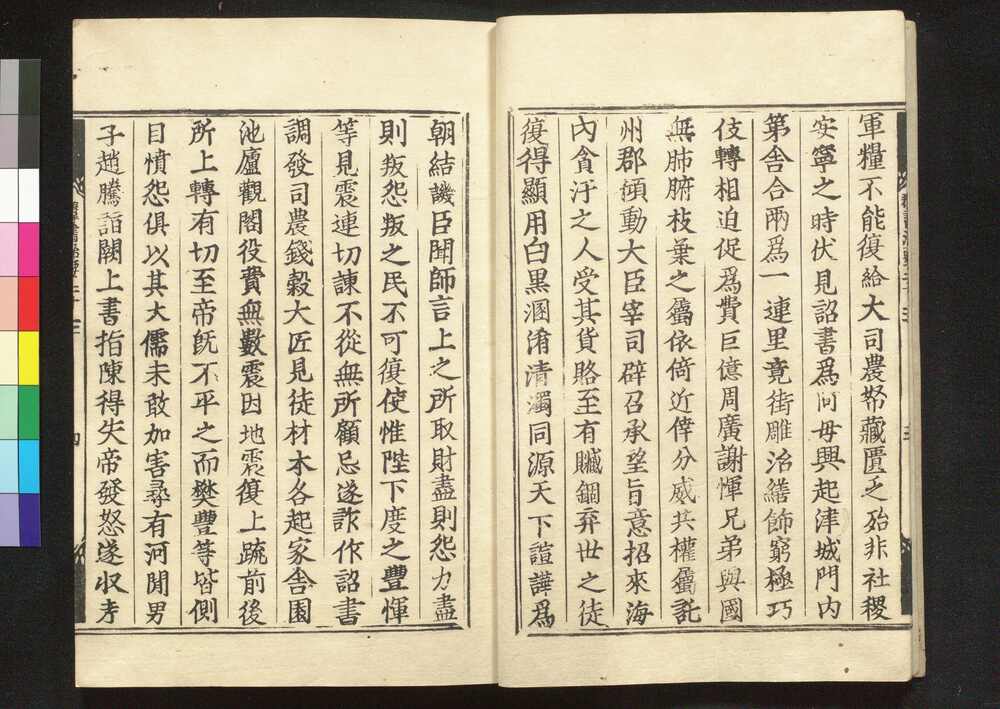 軍糧不能復給大司農帑藏匱乏殆非社稷
安寧之時伏見詔書爲阿母興起津城門內
第舍合兩爲一連里竟街雕治繕飾窮極巧
伎轉相迫促爲費巨億周廣謝惲兄弟與國
無肺腑枝葉之屬依倚近倖分威共權屬託
州郡傾動大臣宰司辟召承望旨意招來海
內貪汙之人受其貨賂至有贓錮弃世之徒
復得顯用白黑溷淆清濁同源天下諠譁爲
朝結譏臣聞師言上之所取財盡則怨力盡
則叛怨叛之民不可復使惟陛下度之豐惲
等見震連切諫不從無所顧忌遂詐作詔書
調發司農錢穀大匠見徒材木各起家舍園
池廬觀閣役費無數震因地震復上疏前後
所上轉有切至帝旣不平之而樊豐等皆側
目憤怨俱以其大儒未敢加害尋有河閒男
子趙騰詣闕上書指陳得失帝發怒遂收考